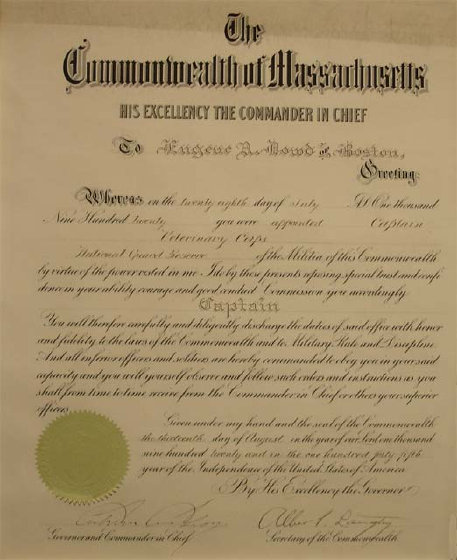 The
Commonwealth of Massachusetts
HIS EXCELLENCY THE COMMANDER IN CHIEF
To Eugene A. Dowd of Boston,
Greeting:
Whereas on the twenty eighth day of July A.D. One thousand
Nine Hundred twenty you were appointed Captain
Veterinary Corps
National Guard Reserve of the Militia of this Commonwealth
by virtue of the power vested in me I do by these presents reposing special trust and confi
dence in your ability courage and good conduct Commission you accordingly
Captain
You will therefore carefully and diligently discharge the duties of said office with honor
and fidelity to the laws of the Commonwealth and to Military Rule and Discipline
And all inferior officers and soldiers are hereby commanded to obey you in your said
capacity and you will yourself observe and follow such orders and instructions as you
shall from time to time receive from the Commander in Chief or others your superior
officers
Given under my hand and the seal of the Commonwealth
the thirteenth day of August in the year of our Lord one thousand
nine hundred twenty and in the one hundred forty fifth
year of the Independence of the United States of America
By His Excellency the Governor
Albert P. Langtry
Governor and Commander in Chief Secretary of the Commonwealth